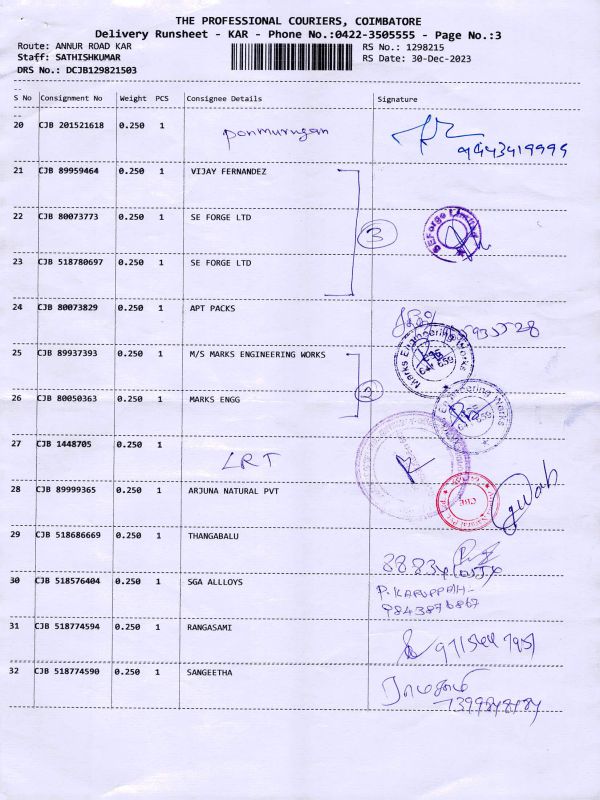 THE PROFESSIONAL COURIERS, COIMBATORE
Delivery Runsheet - KAR - Phone No.:0422-3505555 - Page No.:3
Route: ANNUR ROAD KAR RS No.: 1298215
Staff: SATHISHKUMAR RS Date: 30-Dec-2023
DRS No.: DCJB129821503
S No Consignment No Weight PCS Consignee Details Signature
20 CJB 201521618 0.250 1 Ponmurugan
9443419995
21 CJB 89959464 0.250 1 VIJAY FERNANDEZ
22 CJB 80073773 0.250 1 SE FORGE LTD 3 SEForge Limited
23 CJB 518780697 0.250 1 SE FORGE LTD
24 CJB 80073829 0.250 1 APT PACKS
25 CJB 89937393 0.250 1 M/S MARKS ENGINEERING WORKS Marks Engineering Works
26 CJB 80050363 0.250 1 MARKS ENGG 2 Engineering Works
27 CJB 1448705 0.250 1 LRT
28 CJB 89999365 0.250 1 ARJUNA NATURAL PVT
29 CJB 518686669 0.250 1 THANGABALU
30 CJB 518576404 0.250 1 SGA ALLLOYS P. KARUPPAIH-
9843876867
31 CJB 518774594 0.250 1 RANGASAMI
32 CJB 518774590 0.250 1 SANGEETHA